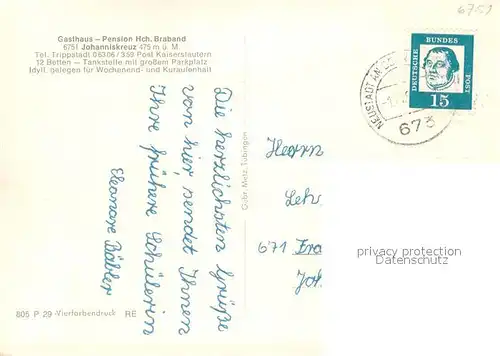 6751
Gasthaus – Pension Hch. Braband
6751 Johanniskreuz 475 m ü. M.
Tel. Trippstadt 06306/359 Post Kaiserslautern
12 Betten – Tankstelle mit großem Parkplatz
Idyll. gelegen für Wochenend- und Kuraufenthalt
DEUTSCHE BUNDES POST
15
NEUSTADT AN DER
673
Die herzlichsten Grüße
von hier, sendet Ihnen
Ihre frühere Schülerin
Eleonore Bäbler
Gebr. Metz, Tübingen
Herrn
Lehr
671 Fra
Joh
privacy protection
Datenschutz
805 P 29 -Vierfarbendruck RE